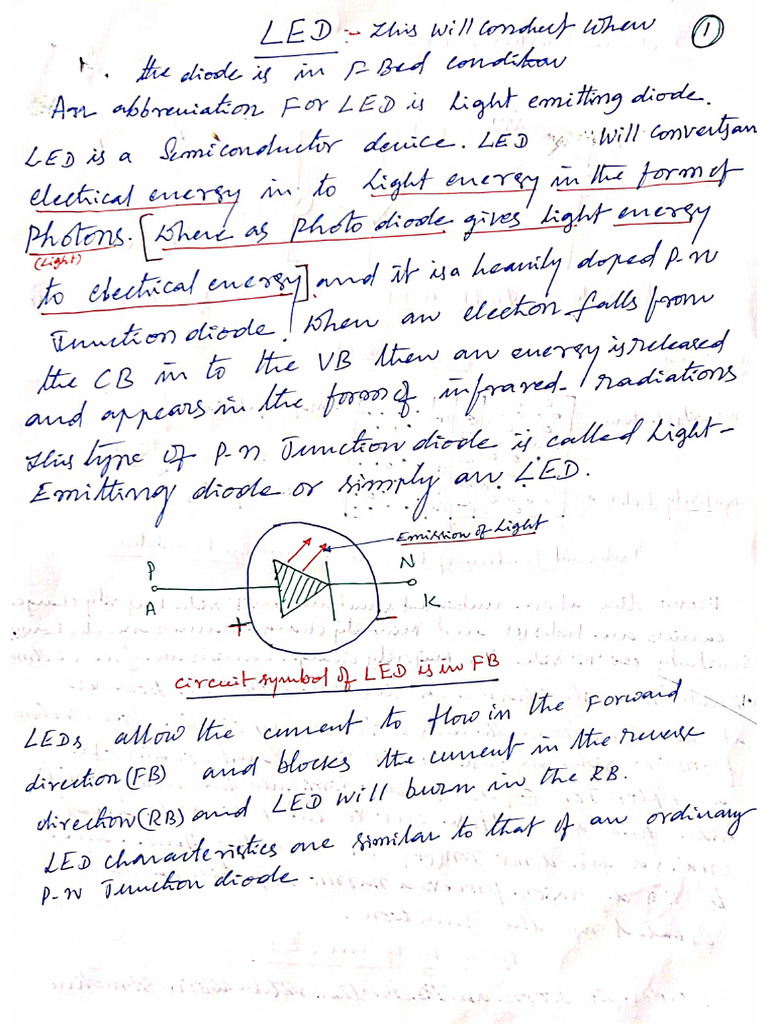 LED :- This will conduct when ①
the diode is in F Bed condition
An abbreviation For LED is Light emitting diode.
LED is a Semiconductor device. LED will converts an
electrical energy in to Light energy in the form of
Photons. [Where as photo diode gives light energy
(Light)
to electrical energy] and it is a heavily doped P-n
Junction diode! When an electron falls from
the CB in to the VB then an energy is released
and appears in the form of infrared- radiations
This type of P-n Junction diode is called Light-
Emitting diode or simply an LED.
Emission of Light
P N
A K
+ -
circuit symbol of LED is in FB
LEDs allow the current to flow in the Forward
direction (FB) and blocks the current in the reverse
direction (RB) and LED will burn in the RB.
LED characteristics are similar to that of an ordinary
P-n Junction diode.